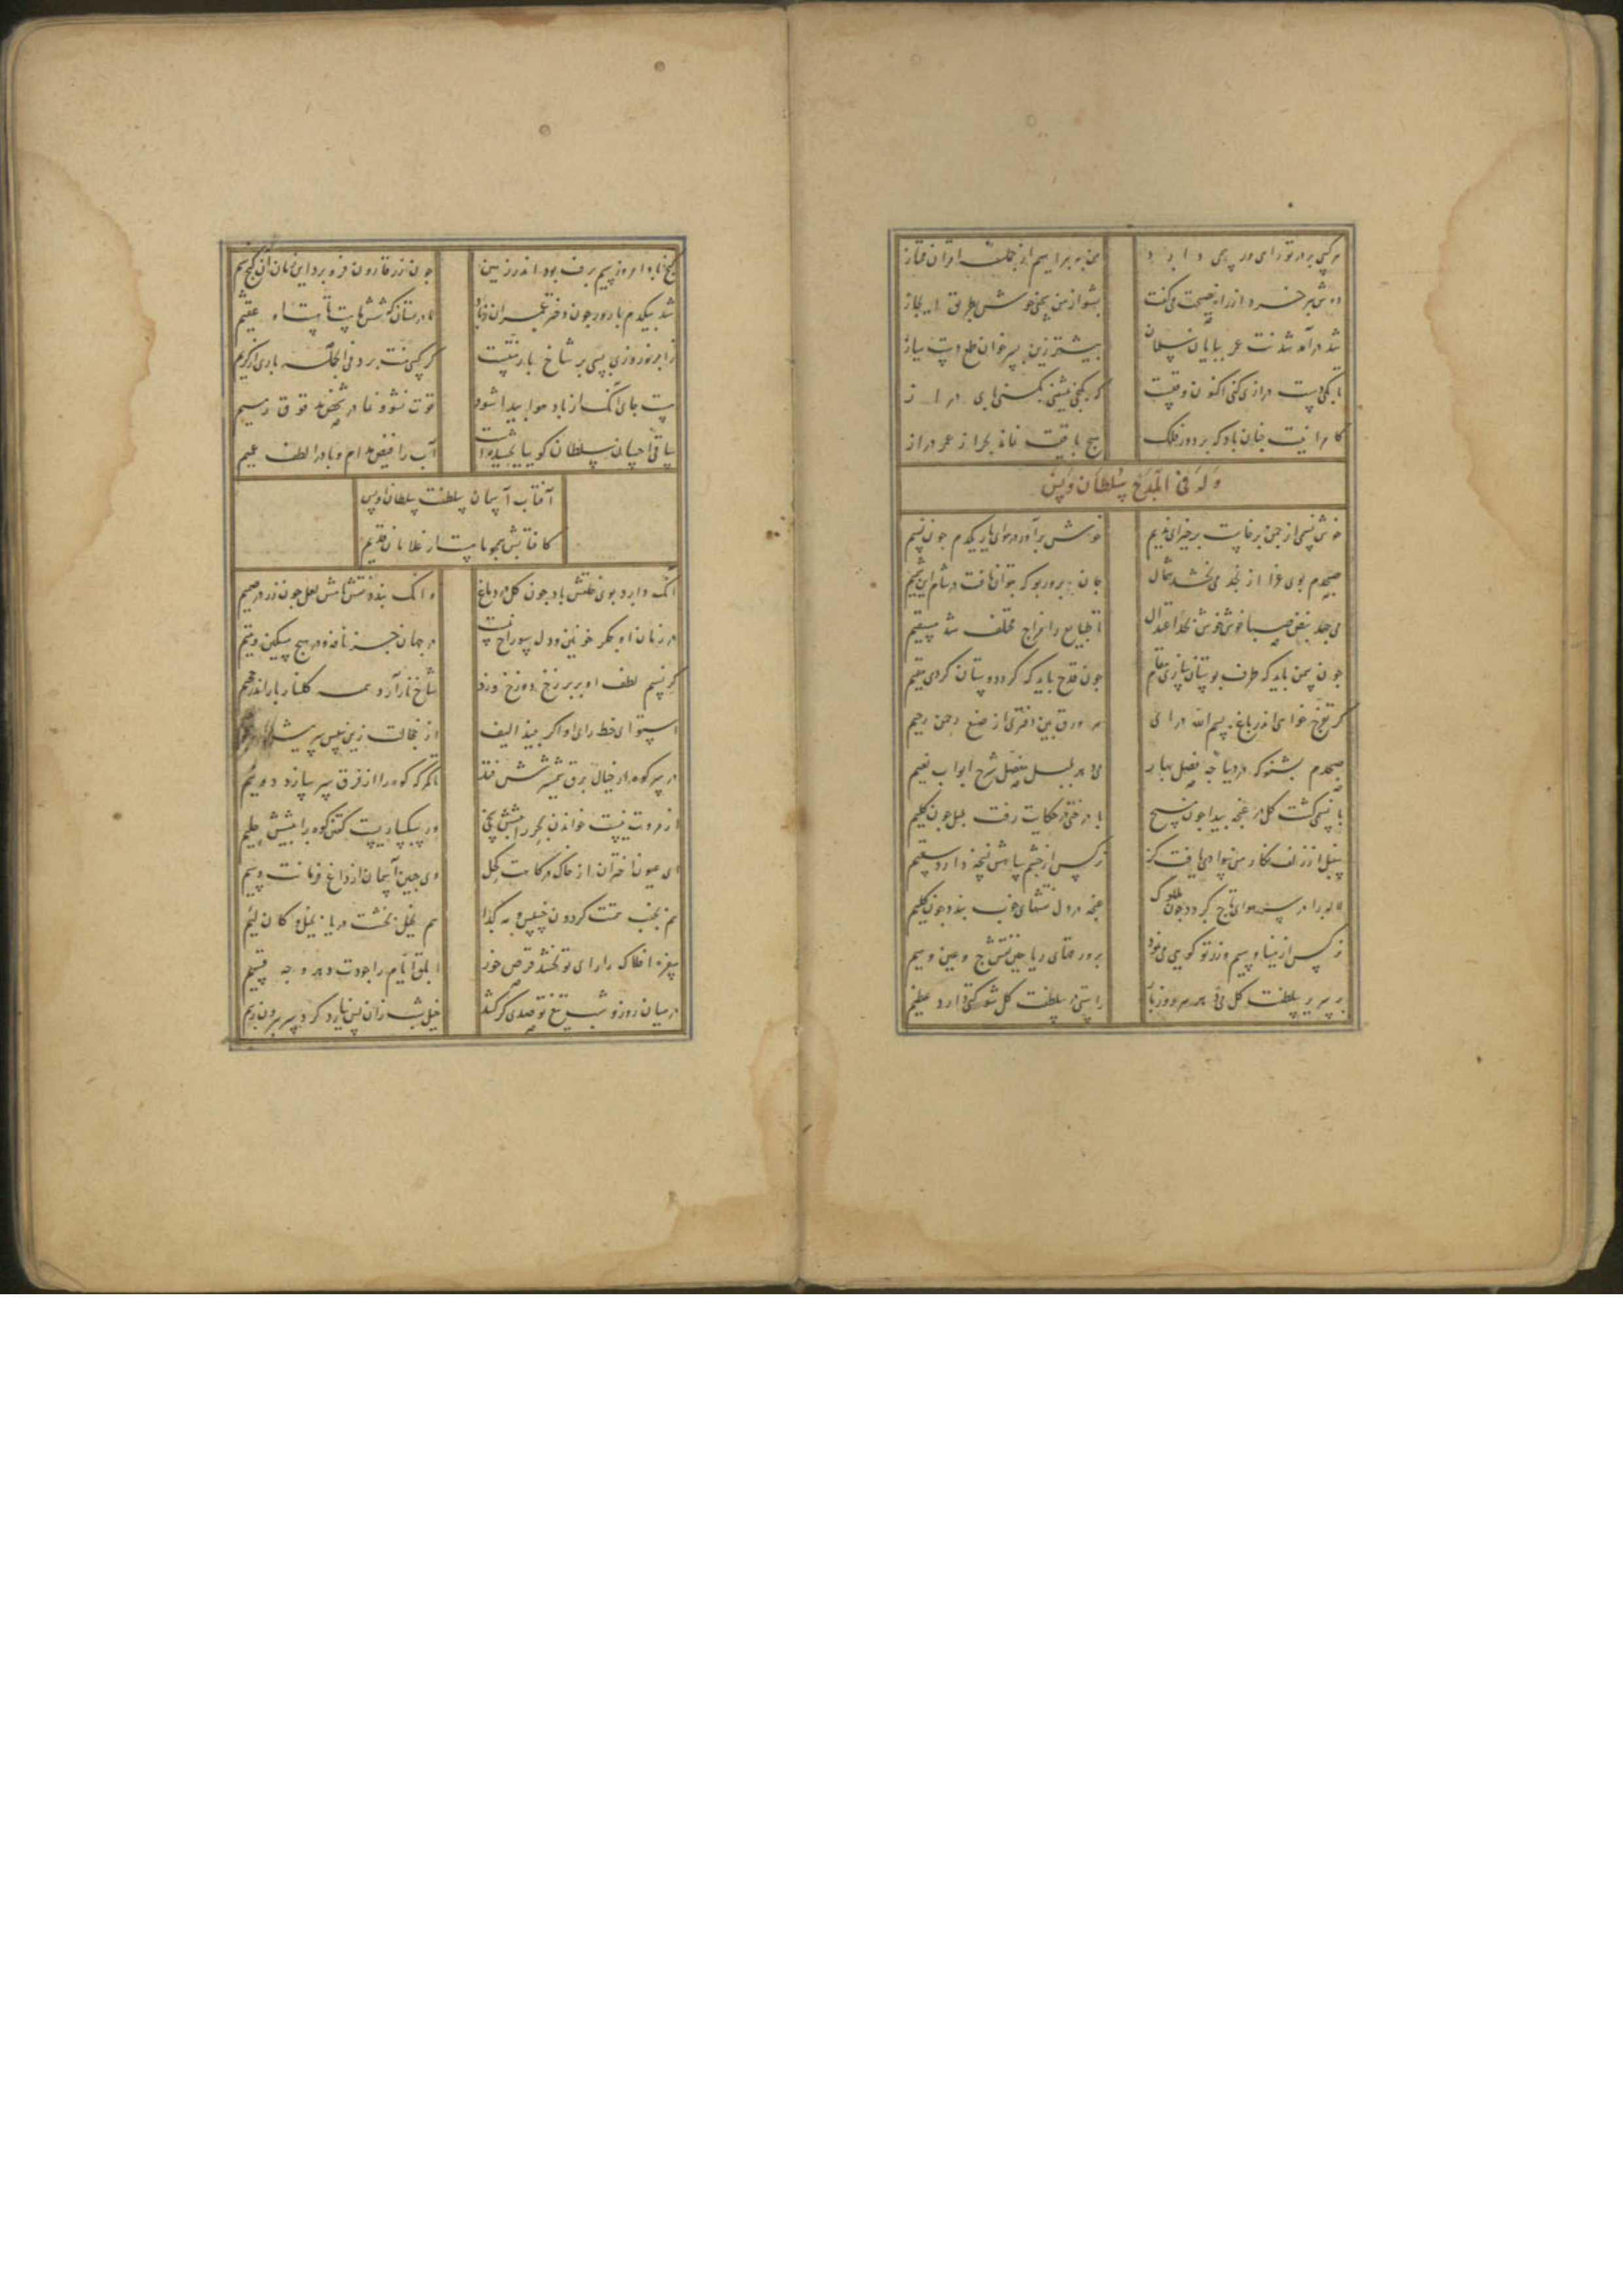 هر کسی بر در تو رای و رهی دارد
من به براهیم از جمله اقران ممتاز
دوش پیر خرد از راه نصیحت می‌گفت
بشنو از من سخنی خوش بطریق ایجاز
شد در آمد شدنت عمر بپایان سلمان
بیشتر زین بسر خوان طمع دست میاز
تا بکی دست درازی کنی اکنون وقتست
که بکنجی بنشینی بکنی پای دراز
کامرانیت چنان باد که بر دور فلک
هیچ باقیت نماند بجز از عمر دراز
وله فی المدح سلطان اویس
خوش نسیمی از چمن برخاست برخیز ای ندیم
خوش برآور در هوای یار یکدم چون نسیم
صبحدم بوی خدا از نجد می‌بخشد شمال
جان بپرور بو که بتوان یافت در شام این شمیم
می‌جهد نبض صبا خوش خوش بحد اعتدال
تا طبایع را مزاج مختلف شد مستقیم
چون سمن باید که طرف بوستان سازی مقام
چون قدح باید که گرد دوستان گردی مقیم
گر تفرج خواهی اندر باغ بسم الله درآی
هر ورق بین دفتری از صنع رحمن رحیم
صبحدم بشنو که در دیباجه فصل بهار
می‌دهد بلبل مفصل شرح ابواب نعیم
با نسیمی گشت گل در غنچه پیدا چون مسیح
با درختی در حکایت رفت بلبل چون کلیم
سنبل از زلف نگار من سوادی یافت کژ
نرگس از چشم سیاهش نسخه دارد سقیم
لاله را در سر هوای تاج گردد چون ملوک
غنچه در دل نقشهای خوب بندد چون کلیم
نرگس از مینا و سیم و زر تو گویی می‌نهد
بر ورقهای ریاحین نقش جیم و عین و سیم
بر سریر سلطنت گل می‌دهد هر روز بار
راستی در سلطنت گل شوکتی دارد عظیم
گنج نابوا مروز سیم برف بود اندر زمین
چون زر قارون فرو برد این زمان آن گنج سیم
شد بیکدم بارور چون دختر عمران نبات
مادر بستان که شش ماهست تا هست او عقیم
ز ابر نوروزی بسی بر شاخ بار منتست
گر کسی منت برد فی الجمله باری از کریم
هست جای آنک از باد هوا پیدا شود
قوت نشو و نما در شخص مدقوق رمیم
ساقی احسان سلطان گوییا بخشیده است
آب را فیض مدام و باد را لطف عمیم
آفتاب آسمان سلطنت سلطان اویس
کافتابش همچو ماهست از غلامان قدیم
آنک دارد بوی خلقش باد چون گل در دماغ
وانک بندد نقش نامش لعل چون زر در صمیم
در زمان او جگر خونین و دل سوراخ نیست
در جهان جز نافه و در هیچ مسکین و یتیم
گر نسیم لطف او بر برزخ دوزخ وزد
شاخ نار آرد همه گلنار بار اندر جحیم
استوای خط رای او اگر بیند الف
از خجالت زین سپس سر پیش
در سر کوه ار خیال برق شمشیرش فتد
تا کمر که کوه را از فرق سر سازد دو نیم
از مروت نیست خواندن بحر را پیشش سخی
ور سبکساریست گفتن کوه را پیشش حلیم
ای عیون اختران از خاک درگاهت کحل
وی جبین آسمان از داغ فرمانت وسیم
هم بجنب همتت گردون خسیس و به گدا
هم بخیل بخششت دریا بخیل و کان لئیم
سفره افلاک را رای تو بخشد قرص خور
ابلق ایام را جودت دهد وجه قسیم
در میان روز و شب تیغ تو صدی گر کشد
خیل شب زان پس نیارد کرد سر بیرون ز بیم